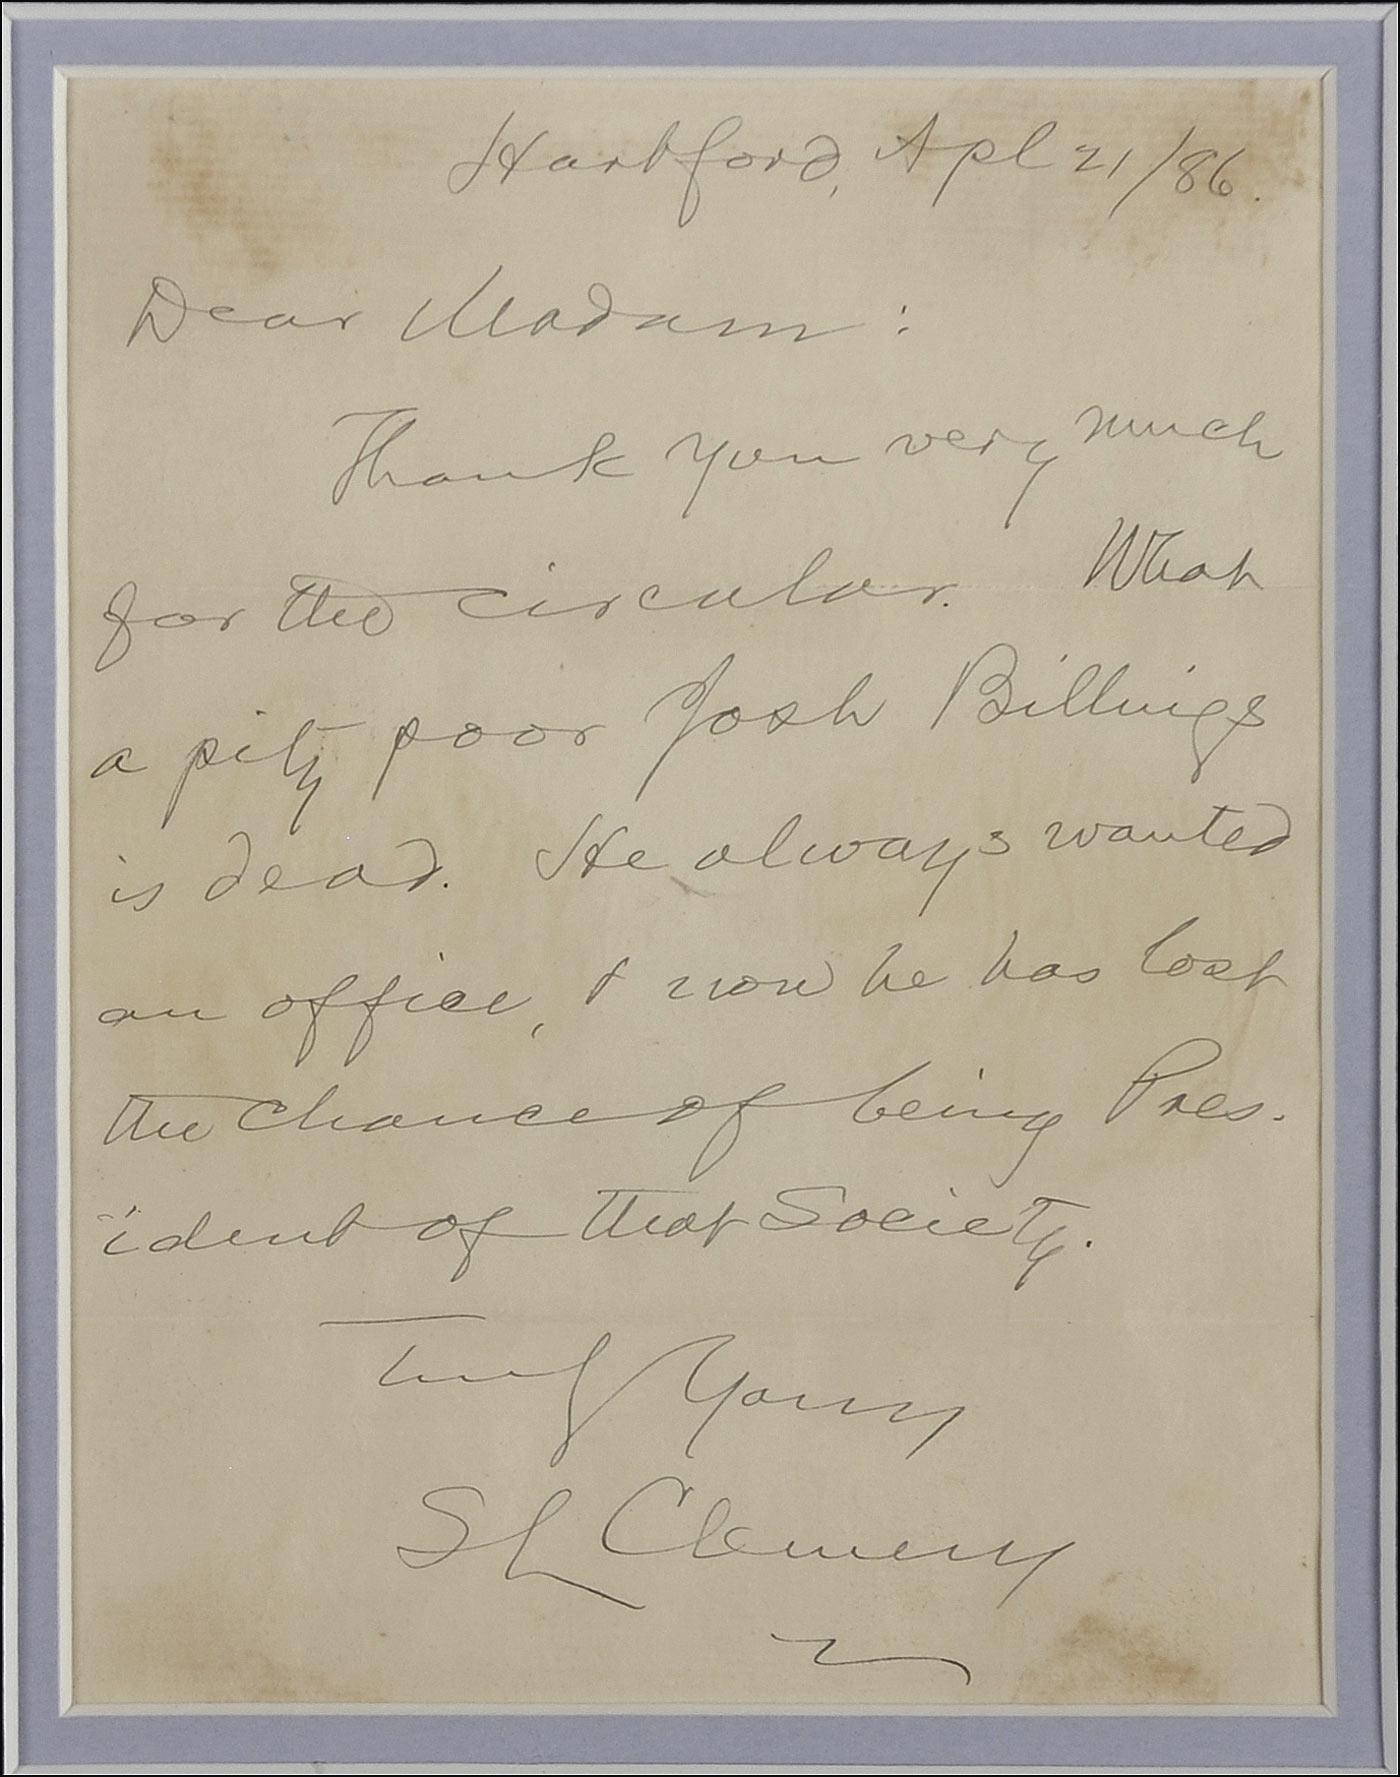 Hartford, Apl 21/86.
Dear Madam:
Thank you very much
for the circular. What
a pity poor Josh Billings
is dead. He always wanted
an office, & now he has lost
the chance of being Pres-
ident of that Society.
Truly Yours
SL Clemens